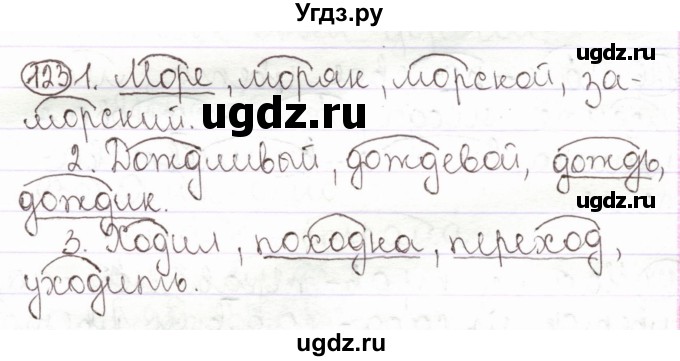 Угдз.ру
123 1. Море, моряк, морской, за-
ugdz.ru
морский.
ugdz.ru
2. Дождливый, дождевой, дождь,
дождик.
ugdz.ru
3. Ходил, походка, переход,
уходить.
ugdz.ru
ugdz.ru